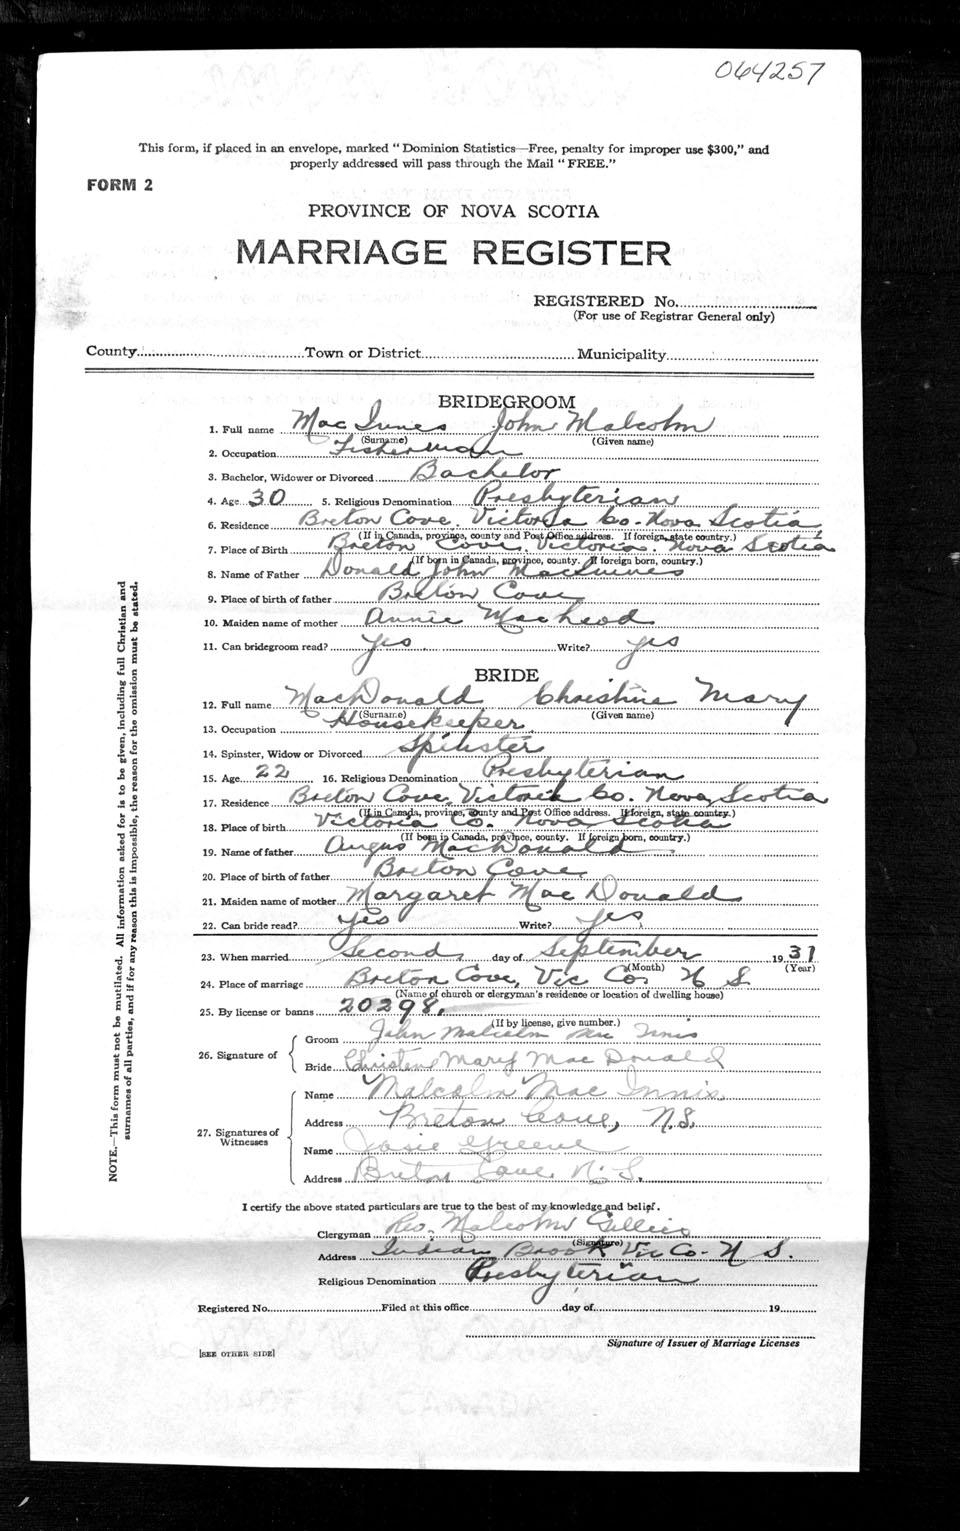 064257
This form, if placed in an envelope, marked "Dominion Statistics—Free, penalty for improper use $300," and
properly addressed will pass through the Mail "FREE."
FORM 2
PROVINCE OF NOVA SCOTIA
MARRIAGE REGISTER
REGISTERED No.
(For use of Registrar General only)
County Town or District Municipality
BRIDEGROOM
1. Full name MacInnes John Malcolm
(Surname) (Given name)
2. Occupation Fisherman
3. Bachelor, Widower or Divorced Bachelor
4. Age 30 5. Religious Denomination Presbyterian
6. Residence Breton Cove, Victoria Co. Nova Scotia
(If in Canada, province, county and Post Office address. If foreign, state country.)
7. Place of Birth Breton Cove, Victoria. Nova Scotia
(If born in Canada, province, county. If foreign born, country.)
8. Name of Father Donald John MacInnes
9. Place of birth of father Breton Cove
10. Maiden name of mother Annie MacLeod
11. Can bridegroom read? Yes Write? yes
BRIDE
12. Full name MacDonald Christina Mary
(Surname) (Given name)
13. Occupation Housekeeper
14. Spinster, Widow or Divorced Spinster
15. Age 22 16. Religious Denomination Presbyterian
17. Residence Breton Cove, Victoria Co. Nova Scotia
(If in Canada, province, county and Post Office address. If foreign, state country.)
18. Place of birth Victoria Co. Nova Scotia
(If born in Canada, province, county. If foreign born, country.)
19. Name of father Angus MacDonald
20. Place of birth of father Breton Cove
21. Maiden name of mother Margaret MacDonald
22. Can bride read? Yes Write? Yes
23. When married Second day of September 1931
(Month) (Year)
24. Place of marriage Breton Cove, Vic Co. N S
(Name of church or clergyman's residence or location of dwelling house)
25. By license or banns 20298.
(If by license, give number.)
26. Signature of
Groom John Malcolm Mac Innis
Bride Christena Mary MacDonald
27. Signatures of Witnesses
Name Malcolm MacInnis
Address Breton Cove, N.S.
Name Josie Greene
Address Breton Cove N.S.
I certify the above stated particulars are true to the best of my knowledge and belief.
Clergyman Rev. Malcolm Gillies
(Signature)
Address Indian Brook Vic Co- N S.
Religious Denomination Presbyterian
Registered No. Filed at this office day of 19
Signature of Issuer of Marriage Licenses
[SEE OTHER SIDE]
NOTE.—This form must not be mutilated. All information asked for is to be given, including full Christian and
surnames of all parties, and if for any reason this is impossible, the reason for the omission must be stated.